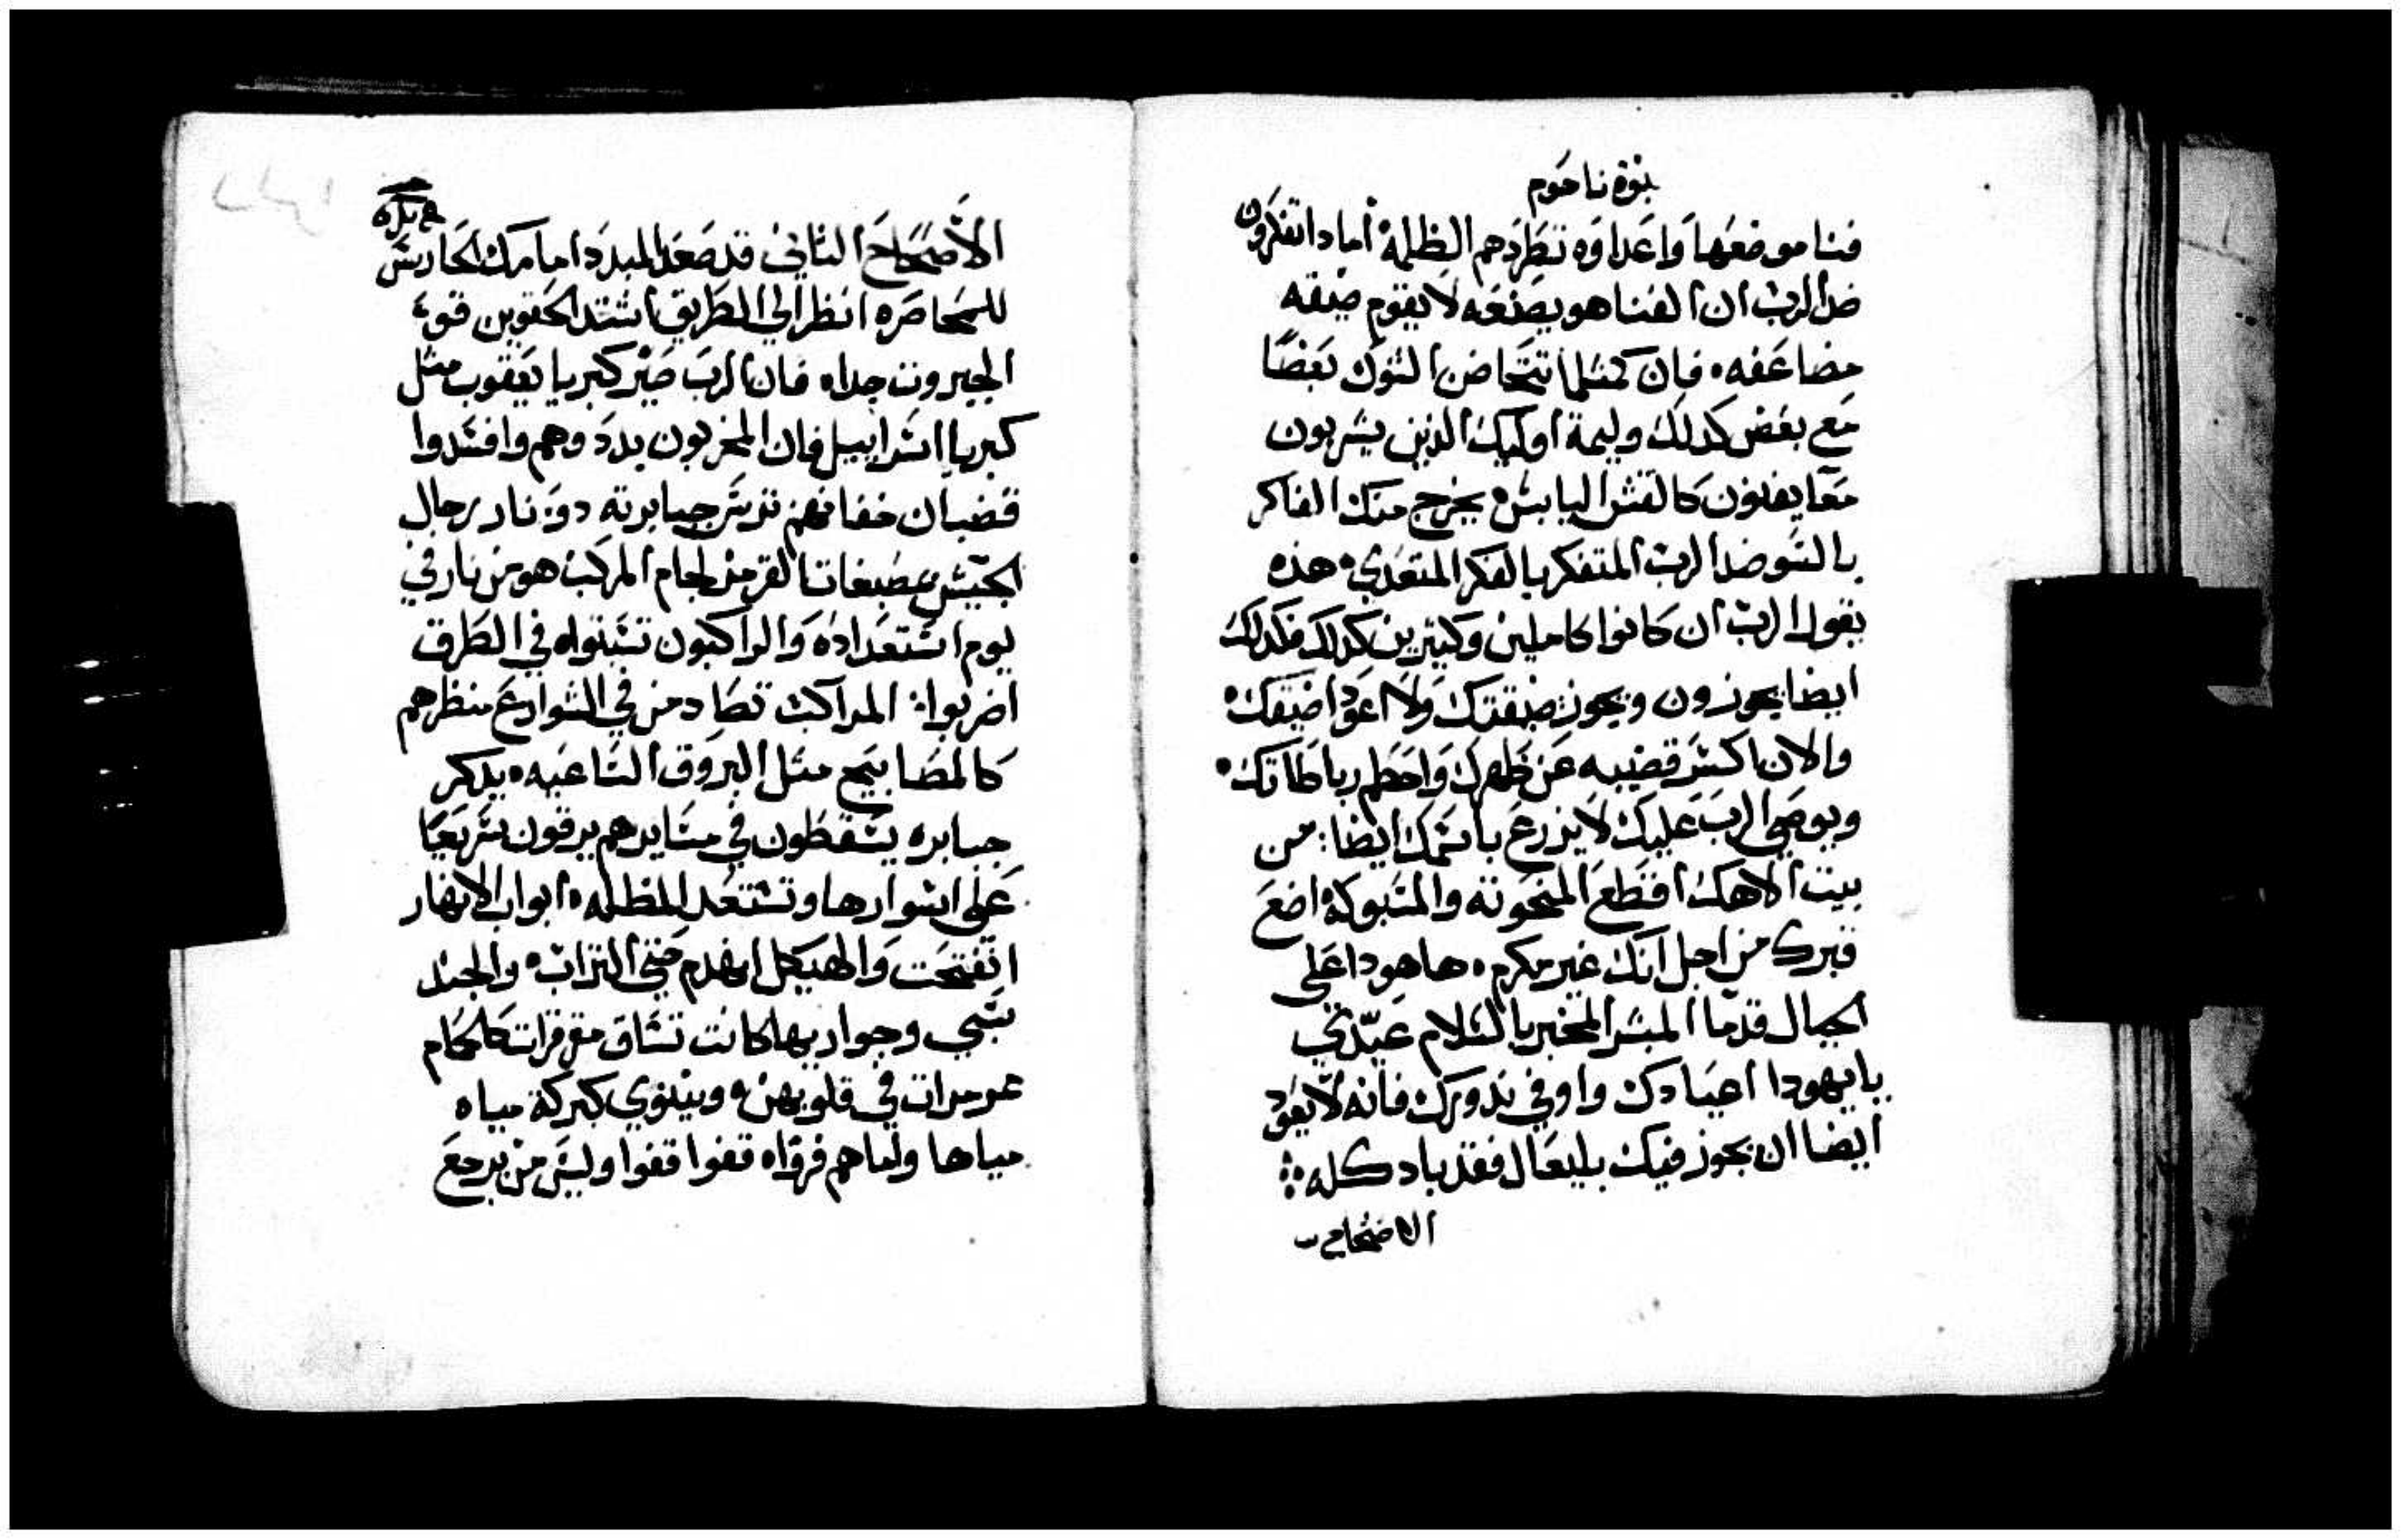 نبوة ناحوم
فنا موضعها واعداوه تطردهم الظلمة اماداتفكرون
ضد الرب ان الفنا هو يصنعه لا يقوم ضيقه
مضاعفه. فان كمثلما تتحاضن الشوك بعضا
مع بعض كدلك وليمة اوليك الدين يشربون
معا يفنون كالقش اليابس يخرج منك الفاكر
بالسو ضد الرب المتفكر بالفكر المتعدي هذه
يقول الرب ان كانوا كاملين وكتيرين كدلك فكدلك
ايضا يجوزون ويجوز ضيقتك ولا اعود اضيقك.
والان اكسر قضيبه عن ظهرك واحطم رباطاتك.
ويوصي الرب عليك لا يزرع باسمك ايضا: من
بيت الاهك اقطع المنحوته والمسبوكة اضع
قبرك من اجل انك غير مكرم. ها هودا على
الجبال قدما المبشر المخبر بالسلام عيّدي
يا يهودا اعيادك واوفي ندورك فانه لا يعود
ايضا ان يجوز فيك بليعال فقد باد كله
الاصحاح
الاصحاح التاني قد صعد المبدد امامك الحارس
للمحاصره انظر الي الطريق اشتد الحقوين قوي
الجبروت جدا. فان الرب صير كبريا يعقوب مثل
كبريا اسراييل فان المخربون بددوهم وافسدوا
قضبان جفانهم ترس جبابرته دو نار رجال
الجيش مصبغات القرمز لجام المركب هو من نار في
يوم استعداده والراكبون تسبتواه في الطرق
اضربوا: المراكب تصادمن في الشوارع منظرهم
كالمصابيح متل البروق الساعيه. يدكر
جبابره يسقطون في مسايرهم يرقون سريعا
على اسوارها وتستعد المظله. ابواب الانهار
انفتحت والهيكل انهدم حتي التراب والجند
سبي وجواريها كانت تساق مقرقرات كالحمام
مرمرات في قلوبهن. ونينوي كبركة مياه
مياها واما هم فرواه قفوا قفوا وليس من يرجع